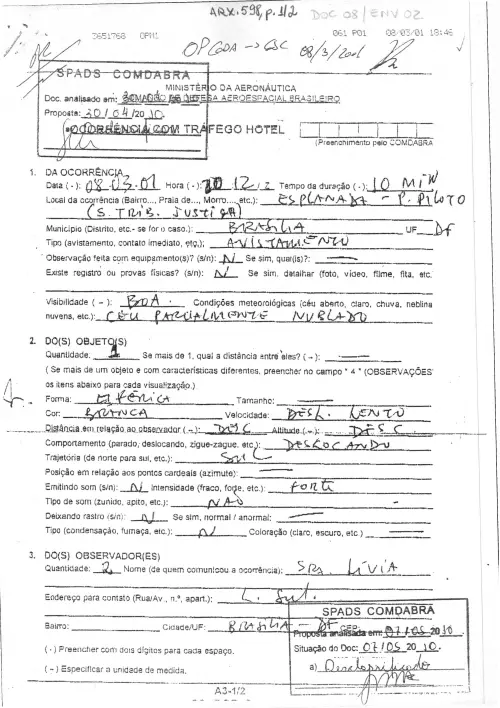 ARX.598, p. 1/2 DOC 08/ENV 02
3651768 OPM1 061 P01 08/03/01 18:46
OPCODA → GSC 08/3/2001
SPADS COMDABRA
MINISTÉRIO DA AERONÁUTICA
Doc. analisado em: COMANDO DE DEFESA AEROESPACIAL BRASILEIRO
Proposta: 20/04/2010.
OCORRÊNCIA COM TRÁFEGO HOTEL
(Preenchimento pelo COMDABRA
1. DA OCORRÊNCIA
Data (·): 08.03.01 Hora (·): 12/2 Tempo da duração (·): 10 MIN
Local da ocorrência (Bairro..., Praia de..., Morro..., etc.): ESPLANADA - P. PILOTO
(S. TRIB. JUSTIÇA)
Município (Distrito, etc.- se for o caso.): BRASÍLIA UF DF
Tipo (avistamento, contato imediato, etç.): AVISTAMENTO
Observação feita com equipamento(s)? (s/n): N Se sim, qual(is)?: —
Existe registro ou provas físicas? (s/n): N Se sim, detalhar (foto, vídeo, filme, fita, etc.
Visibilidade ( – ): BOA. Condições meteorológicas (céu aberto, claro, chuva, neblina
nuvens, etc.): CÉU PARCIALMENTE NUBLADO
2. DO(S) OBJETO(S)
Quantidade: 1 Se mais de 1, qual a distância entre eles? ( – ): —
( Se mais de um objeto e com características diferentes, preencher no campo " 4 " (OBSERVAÇÕES
os itens abaixo para cada visualização.)
Forma: ESFÉRICA Tamanho: —
Cor: BRANCA Velocidade: DESL. LENTO
Distância em relação ao observador ( – ): DESC Altitude ( – ): DESC
Comportamento (parado, deslocando, zigue-zague, etc.): DESLOCANDO
Trajetória (de norte para sul, etc.): SUL
Posição em relação aos pontos cardeais (azimute): —
Emitindo som (s/n): N Intensidade (fraco, forte, etc.): FORTE
Tipo de som (zunido, apito, etc.): NÃO
Deixando rastro (s/n): N Se sim, normal / anormal: —
Tipo (condensação, fumaça, etc.): N Coloração (claro, escuro, etc.) —
3. DO(S) OBSERVADOR(ES)
Quantidade: 2 Nome (de quem comunicou a ocorrência): SRA LÍVIA
Endereço para contato (Rua/Av., n.º, apart.): L. Sul.
Bairro: Cidade/UF: BRASÍLIA - DF CEP:
(·) Preencher com dois dígitos para cada espaço.
( – ) Especificar a unidade de medida.
SPADS COMDABRA
Proposta analisada em: 07/05 2010.
Situação do Doc: 07/05 2010.
a) Desclassificado
A3-1/2